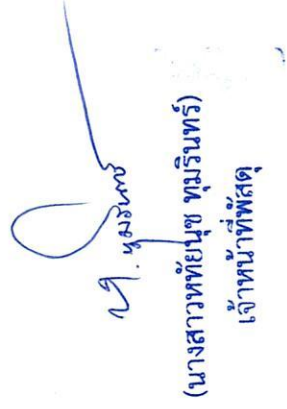 ห. ทุมรินทร์
(นางสาวหทัยนุช ทุมรินทร์)
เจ้าหน้าที่พัสดุ